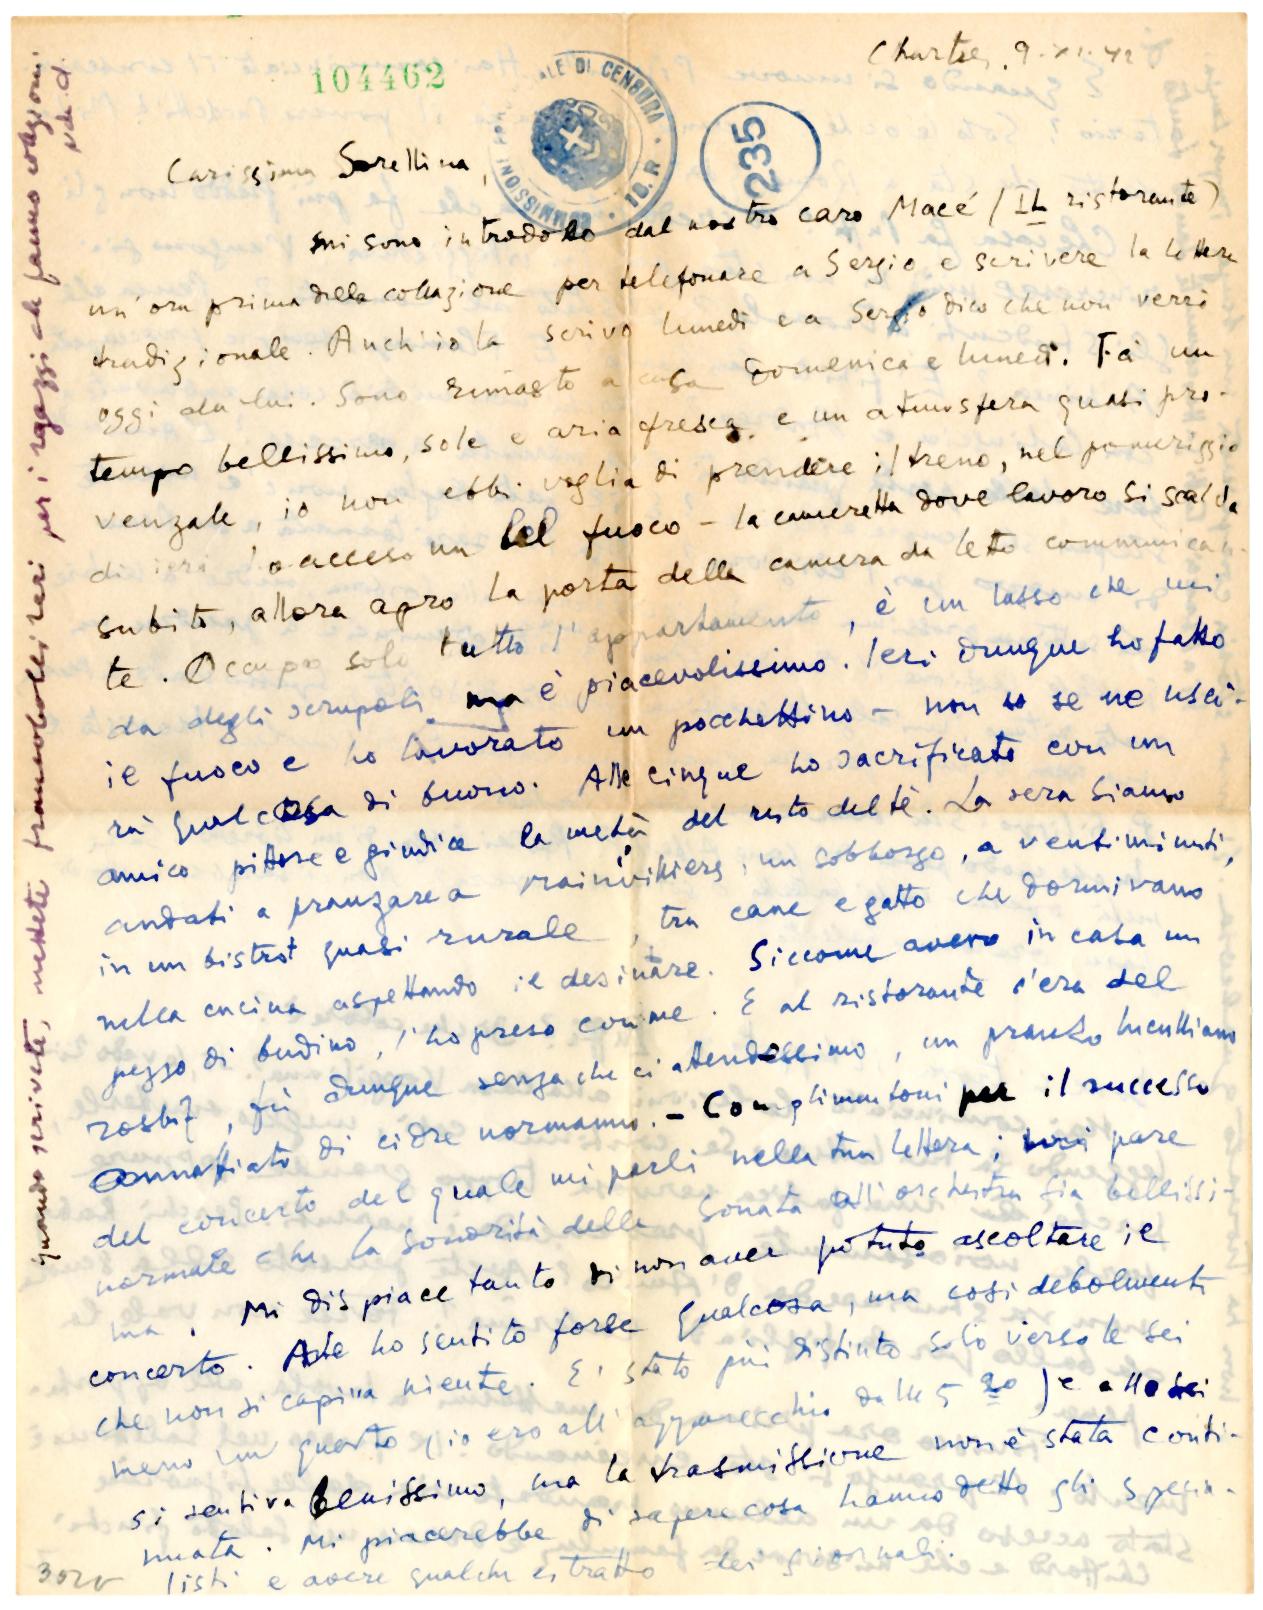 Chartres, 9-XI-42
104462
COMMISSIONE PROVINCIALE DI CENSURA · 10. R ·
235
Carissima Sorellina,
mi sono introdotto dal nostro caro Macé (IL ristorante)
un'ora prima della collazione per telefonare a Sergio e scrivere la lettera
tradizionale. Anch'io la scrivo lunedì e a Sergio dico che non verrò
oggi da lui. Sono rimasto a casa Domenica e lunedì. Fà un
tempo bellissimo, sole e aria fresca e un atmosfera quasi pro-
venzale, io non ebbi voglia di prendere il treno, nel pomeriggio
di ieri ho acceso un bel fuoco - la cameretta dove lavoro si scalda
subito, allora apro la porta della camera da letto communican-
te. Occupo solo tutto l'appartamento, è un lusso che mi
da degli scrupoli ma è piacevolissimo. Ieri dunque ho fatto
il fuoco e ho lavorato un pocchettino - non so se ne usci-
rà qualcosa di buono. Alle cinque ho sacrificato con un
amico pittore e giudice la metà del resto del tè. La sera siamo
andati a pranzare a Mainvilliers, un sobborgo, a venti minuti,
in un bistrot quasi rurale, tra cane e gatto che dormivano
nella cucina aspettando il desinare. Siccome avevo in casa un
pezzo di budino, l'ho preso con me. E al ristorante c'era del
rosbif, fù dunque senza che ci attendessimo, un pranzo luculliano
annaffiato di cidre normanno. - Complimentoni per il successo
del concerto del quale mi parli nella tua lettera; mi pare
normale che la sonorità della Sonata all'orchestra sia bellissi-
ma. Mi dispiace tanto di non aver potuto ascoltare il
concerto. Ho sentito forse qualcosa, ma così debolmente
che non si capiva niente. E' stato più distinto solo verso le sei
meno un quarto (io ero all'apparecchio dalle 5 20) e alle sei
si sentiva benissimo, ma la trasmissione non è stata conti-
nuata. Mi piacerebbe di sapere cosa hanno detto gli specia-
listi e avere qualche estratto dei giornali.
3020
quando scrivete, mettete francobolli rari per i ragazzi che fanno collezioni.